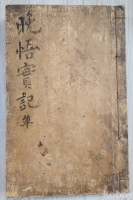 晚悟實記 單